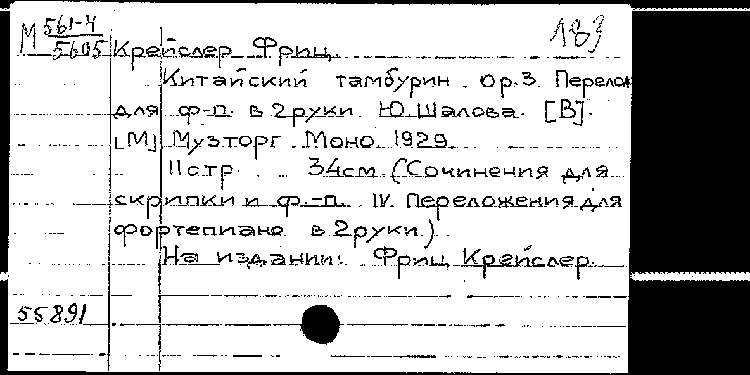 М 561-4 183
5605 Крейслер Фриц.
Китайский тамбурин. op.3. Перелож
для ф-п. в 2руки Ю.Шалова. [В].
[М] Музторг Моно 1929.
11стр. 34см. (Сочинения для
скрипки и ф.-п. IV. Переложения для
фортепиано в 2руки.)
На издании: Фриц Крейслер.
55891